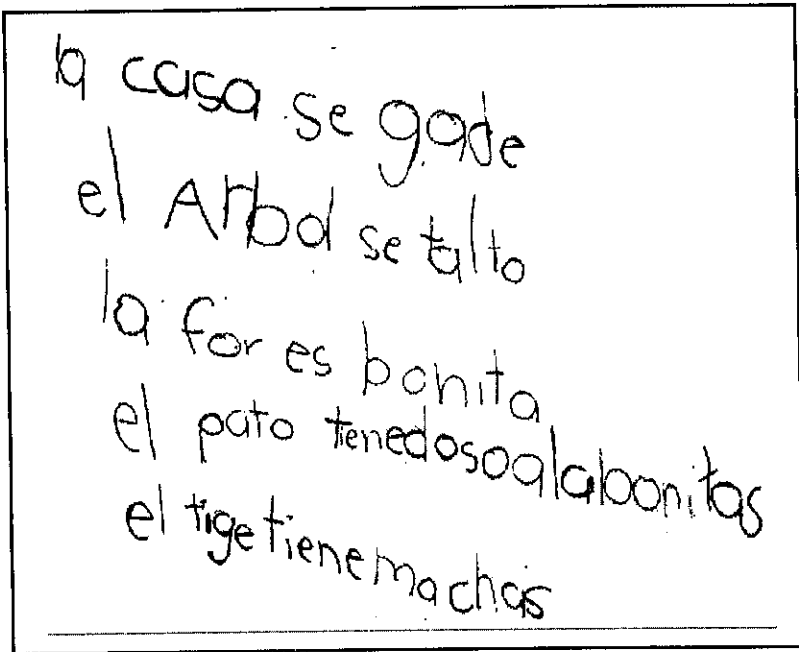 la casa se gade
el Arbol se talto
la for es bonita
el pato tienedosoalabonitas
el tige tienemachas